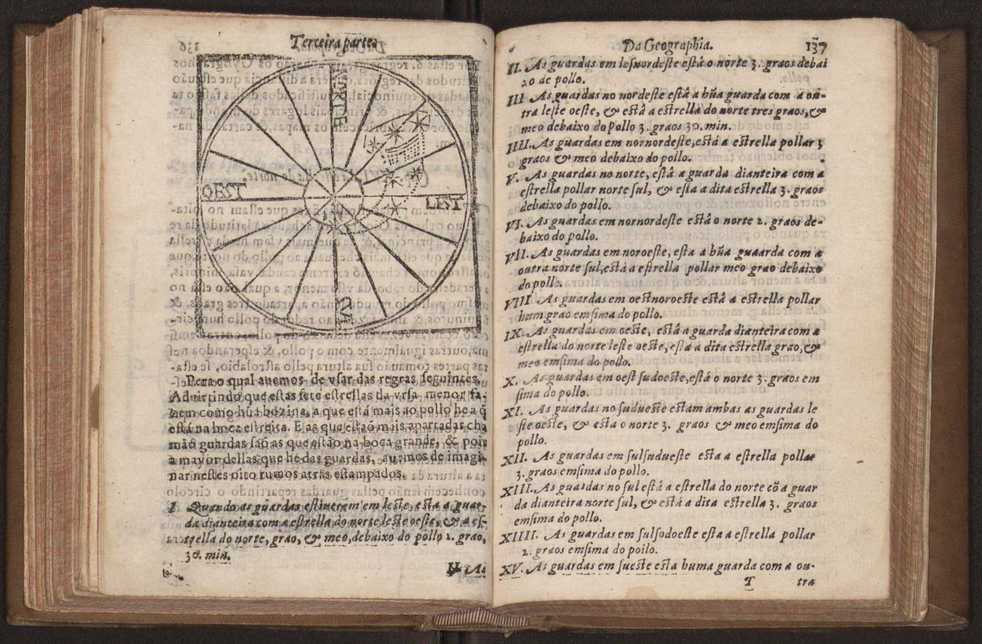 Terceira parte
OEST
LEST
Pera o qual auemos de vsar das regras seguintes.
Aduirtindo que estas sete estrellas da vrsa menor fa-
zem como húa bozina, a que está mais ao pollo he a q̃
está na boca estreita. E as que estaõ mais apartadas cha
maõ guardas saõ as que estaõ na boca grande, & pois
a mayor dellas que he das guardas, auemos de imagi
nar nestes oito rumos atras estampados.
I Quando as guardas estiuerem em leste, esta a guar-
da dianteira com a estrella do norte leste oeste, & a es-
trella do norte, grao, & meo, debaixo do pollo 2. grao,
30. min.
II As
Da Geographia.
137
II. As guardas em lesnordeste está o norte 3. graos debai
xo de pollo.
III As guardas no nordeste está a hũa guarda com a ou-
tra leste oeste, & está a estrella do norte tres graos, &
meo debaixo do pollo 3. graos 30. min.
IIII. As guardas em nornordeste, está a estrella pollar 3
graos & meo debaixo do pollo.
V. As guardas no norte, está a guarda dianteira com a
estrella pollar norte sul, & esta a dita estrella 3. graos
debaixo do pollo.
VI. As guardas em nornordeste está o norte 2. graos de-
baixo do pollo.
VII. As guardas em noroeste, esta a hũa guaarda com a
outra norte sul, está a estrella pollar meo grao debaixo
do pollo.
VIII As guardas em oestnoroeste está a estrella pollar
hum grao emsima do pollo.
IX. As guardas em oeste, está a guarda dianteira com a
estrella do norte leste oeste, esta a dita estrella grao, &
meo emsima do pollo.
X. As guardas em oest sudoeste, está o norte 3. graos em
sima do pollo.
XI. As guardas no sudueste estam ambas as guardas le
ste oeste, & esta o norte 3. graos & meo emsima do
pollo.
XII. As guardas em sulsudueste esta a estrella pollar
3. graos emsima do pollo.
XIII. As guardas no sul está a estrella do norte cõ a guar
da dianteira norte sul, & está a dita estrella 3. graos
emsima do pollo.
XIIII. As guardas em sulsudoeste esta a estrella pollar
2. graos emsima do pollo.
XV. As guardas em sueste esta huma guarda com a ou-
T tra